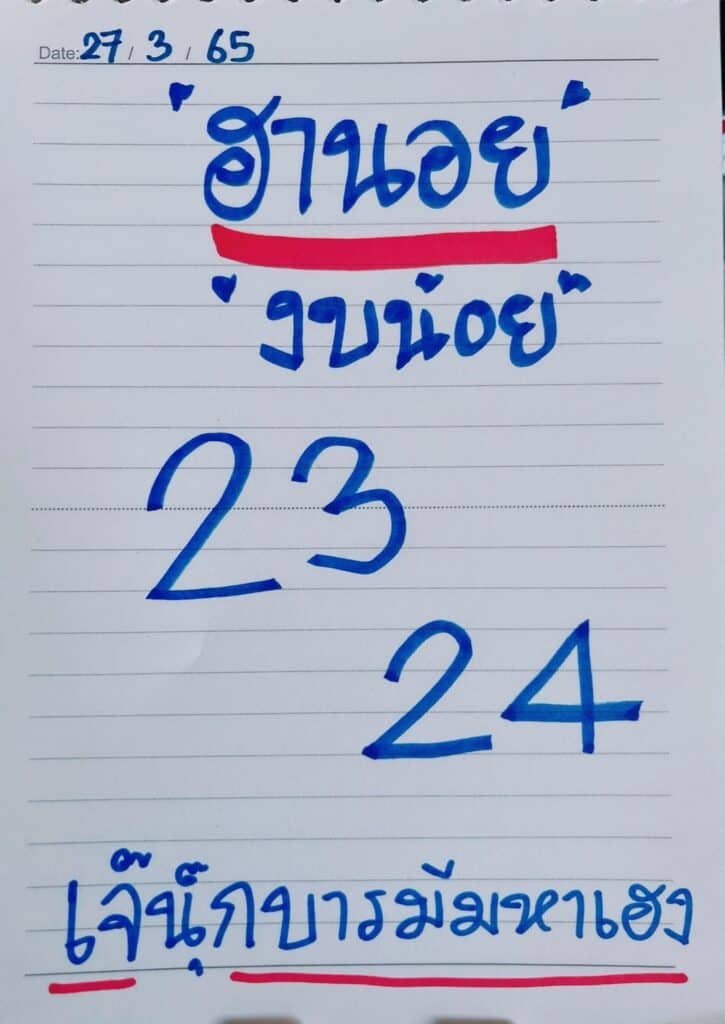 Date: 27 / 3 / 65
"ฮานอย"
"งบน้อย"
23
24
เจ๊นุ๊กบารมีมหาเฮง